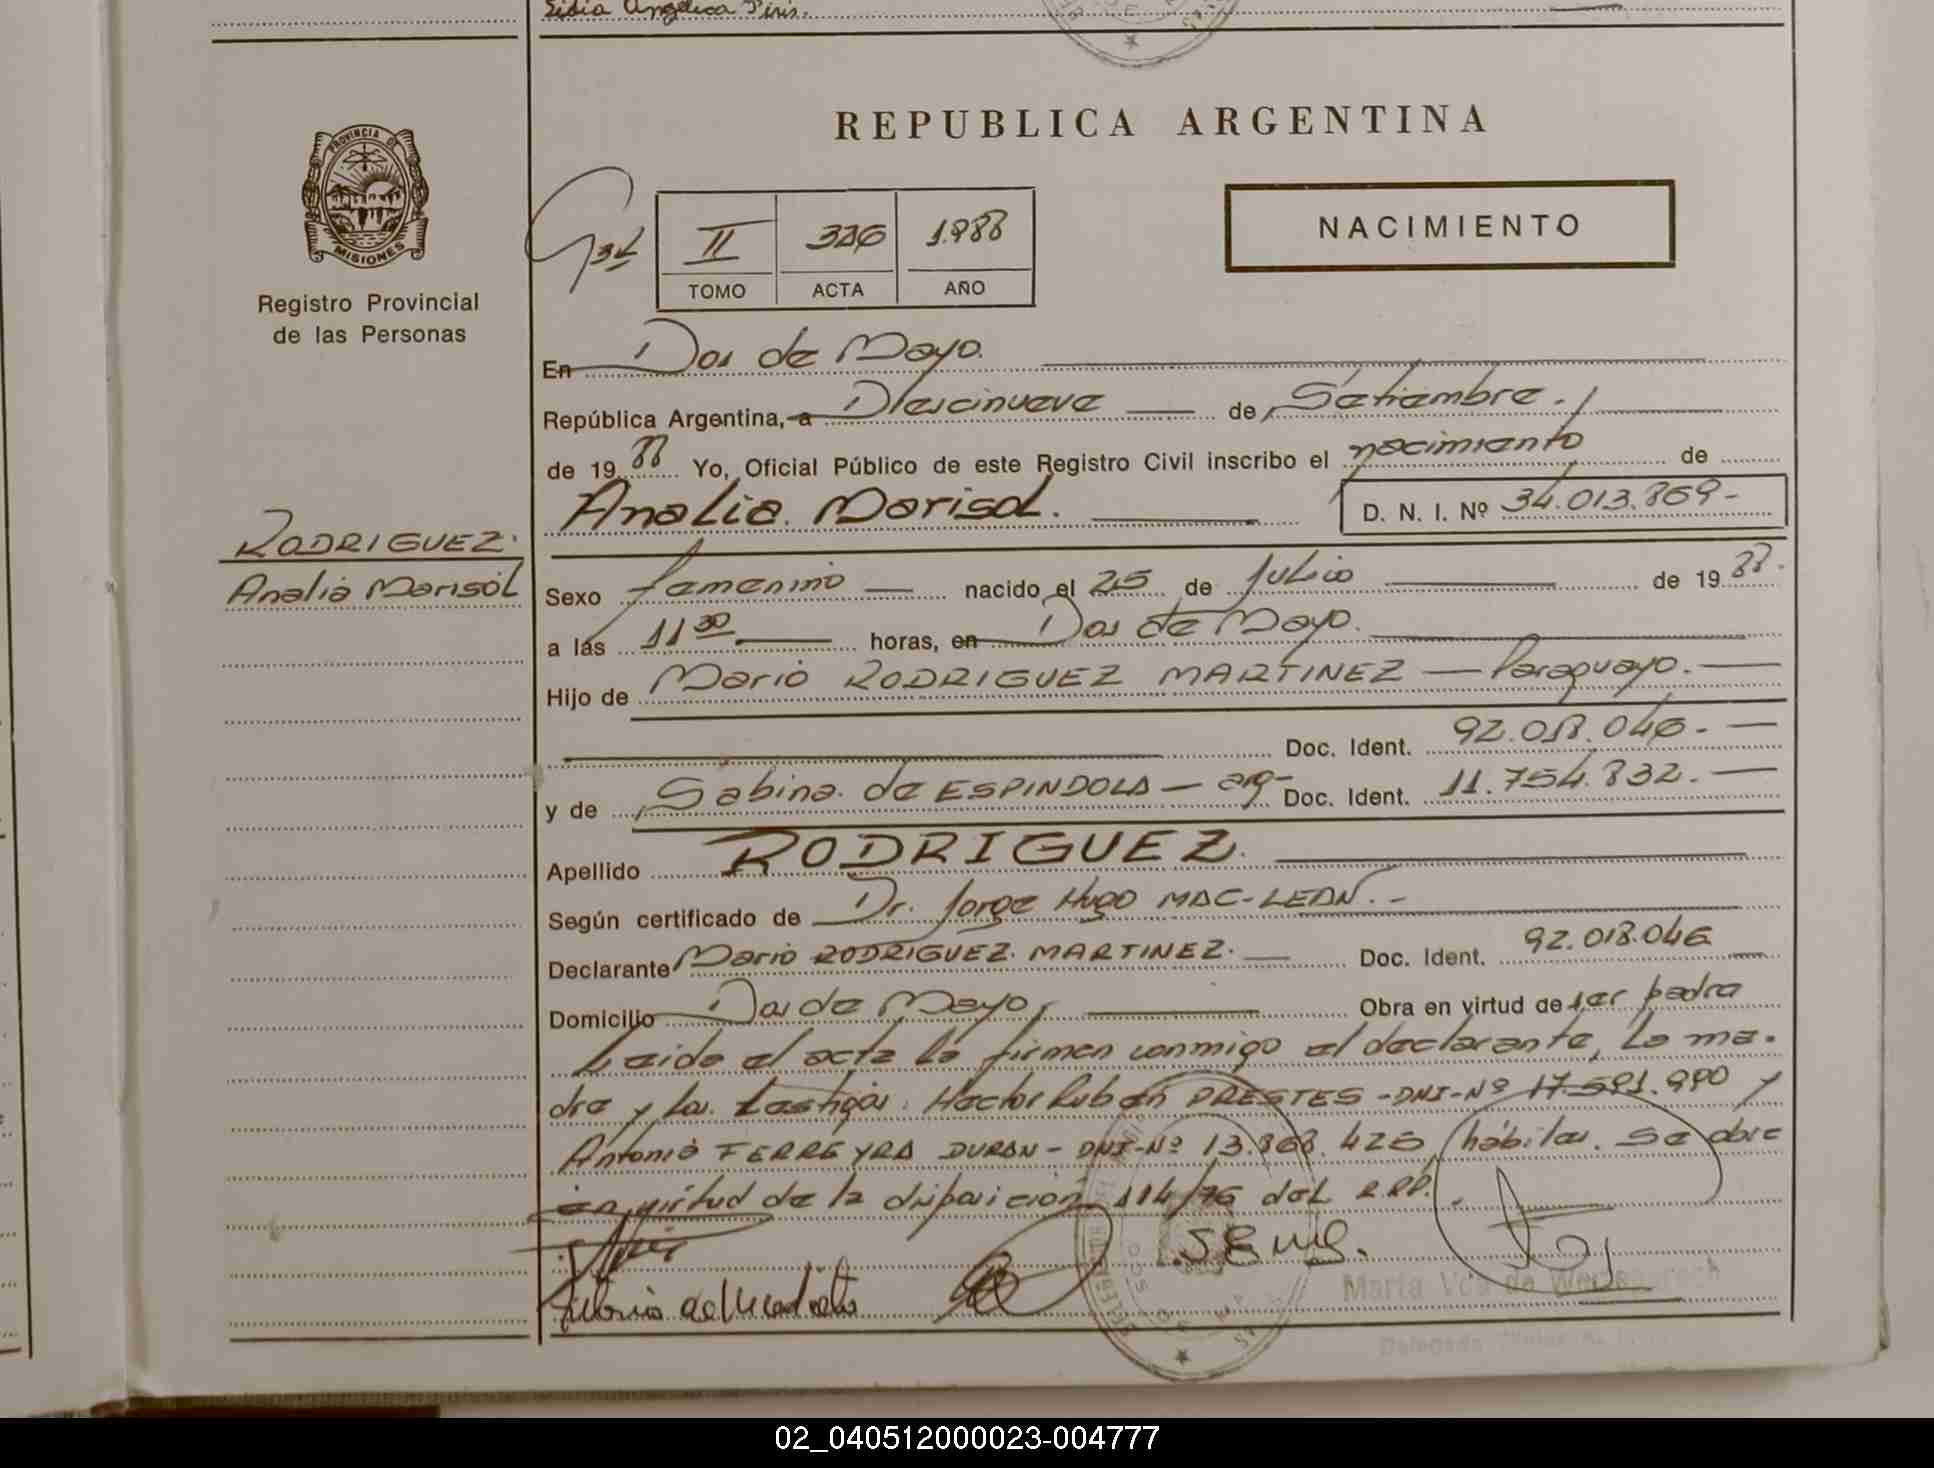 Lidia Angelica Piris.
REPUBLICA ARGENTINA
PROVINCIA DE
MISIONES
Registro Provincial
de las Personas
NACIMIENTO
II 326 1.988
TOMO ACTA AÑO
En Dos de Mayo.
República Argentina, a Diescinueve de Setiembre.
de 19 88 Yo, Oficial Público de este Registro Civil inscribo el nacimiento de
Analia Marisol.
D. N. I. Nº 34.013.869-
RODRIGUEZ.
Analia Marisol
Sexo femenino nacido el 25 de Julio de 19 88.
a las 11 30 horas, en Dos de Mayo.
Hijo de Mario RODRIGUEZ MARTINEZ — Paraguayo.
Doc. Ident. 92.018.046.-
y de Sabina de ESPINDOLA — arg- Doc. Ident. 11.754.832.-
Apellido RODRIGUEZ.
Según certificado de Dr. Jorge Hugo MAC-LEAN.-
Declarante Mario RODRIGUEZ MARTINEZ. Doc. Ident. 92.018.046
Domicilio Dos de Mayo, Obra en virtud de ser padre
Leida el acta la firman conmigo el declarante, la ma-
dre y los testigos: Hector Ruben PRESTES -DNI-Nº 17.591.990 y
Antonio FERREYRA DURAN - DNI-Nº 13.868.425, hábiles. Se obre
en virtud de la disposición 114/76 del R.P.P.
Marta Vos de
Delegada Titular
02_040512000023-004777